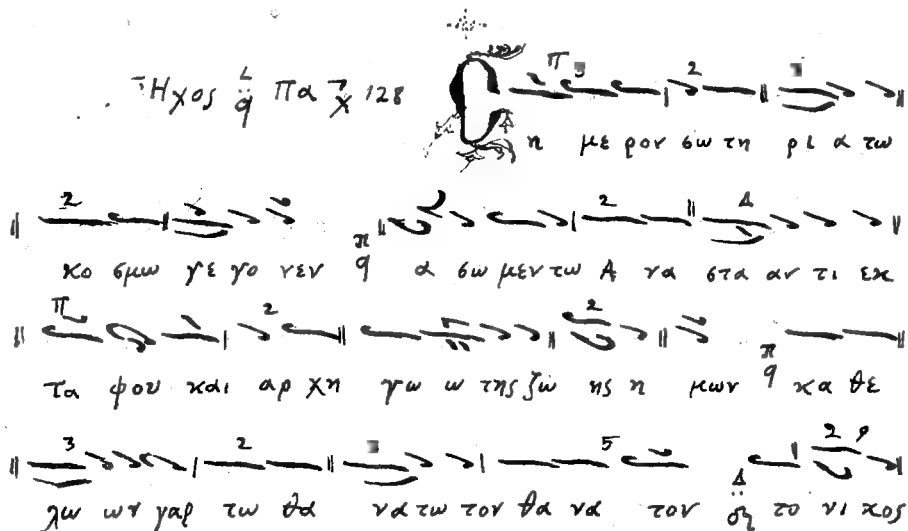 Ήχος Πα 128
Σ η με ρον σω τη ρι α τω
κο σμω γε γο νεν α σω μεν τω Α να στα αν τι εκ
τα φου και αρ χη γω ω της ζω ης η μων κα θε
λω ων γαρ τω θα να τω τον θα να τον το νι κος